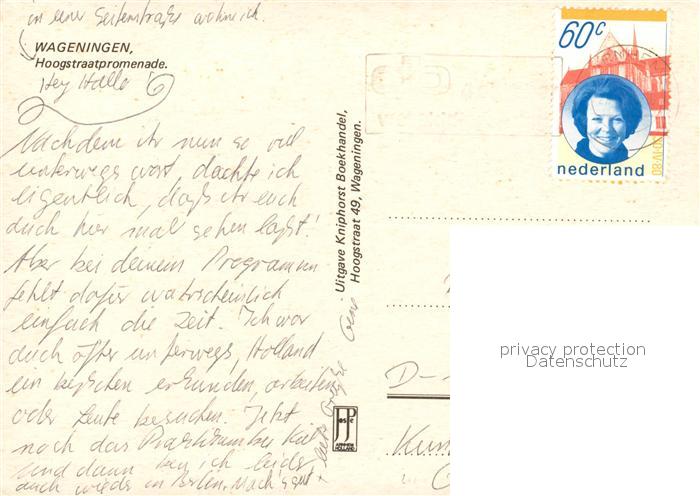 in einer Seitenstraße wohne ich.
WAGENINGEN,
Hoogstraatpromenade.
Hey Hallo!
Nachdem ihr nun so viel
unterwegs wart, dachte ich
eigentlich, daß ihr euch
auch hier mal sehen laßt!
Aber bei deinem Programm
fehlt dafür wahrscheinlich
einfach die Zeit. Ich war
auch öfter unterwegs, Holland
ein bißchen erkunden, arbeiten
oder Leute besuchen. Jetzt
noch das Praktikum bei
und dann bin ich leider
auch wieder in Berlin. Mach's gut
liebe Grüße
Uitgave Kniphorst Boekhandel,
Hoogstraat 49, Wageningen.
JosPé
ARNHEM
HOLLAND
60c
nederland
30·IV·80
D-
privacy protection
Datenschutz